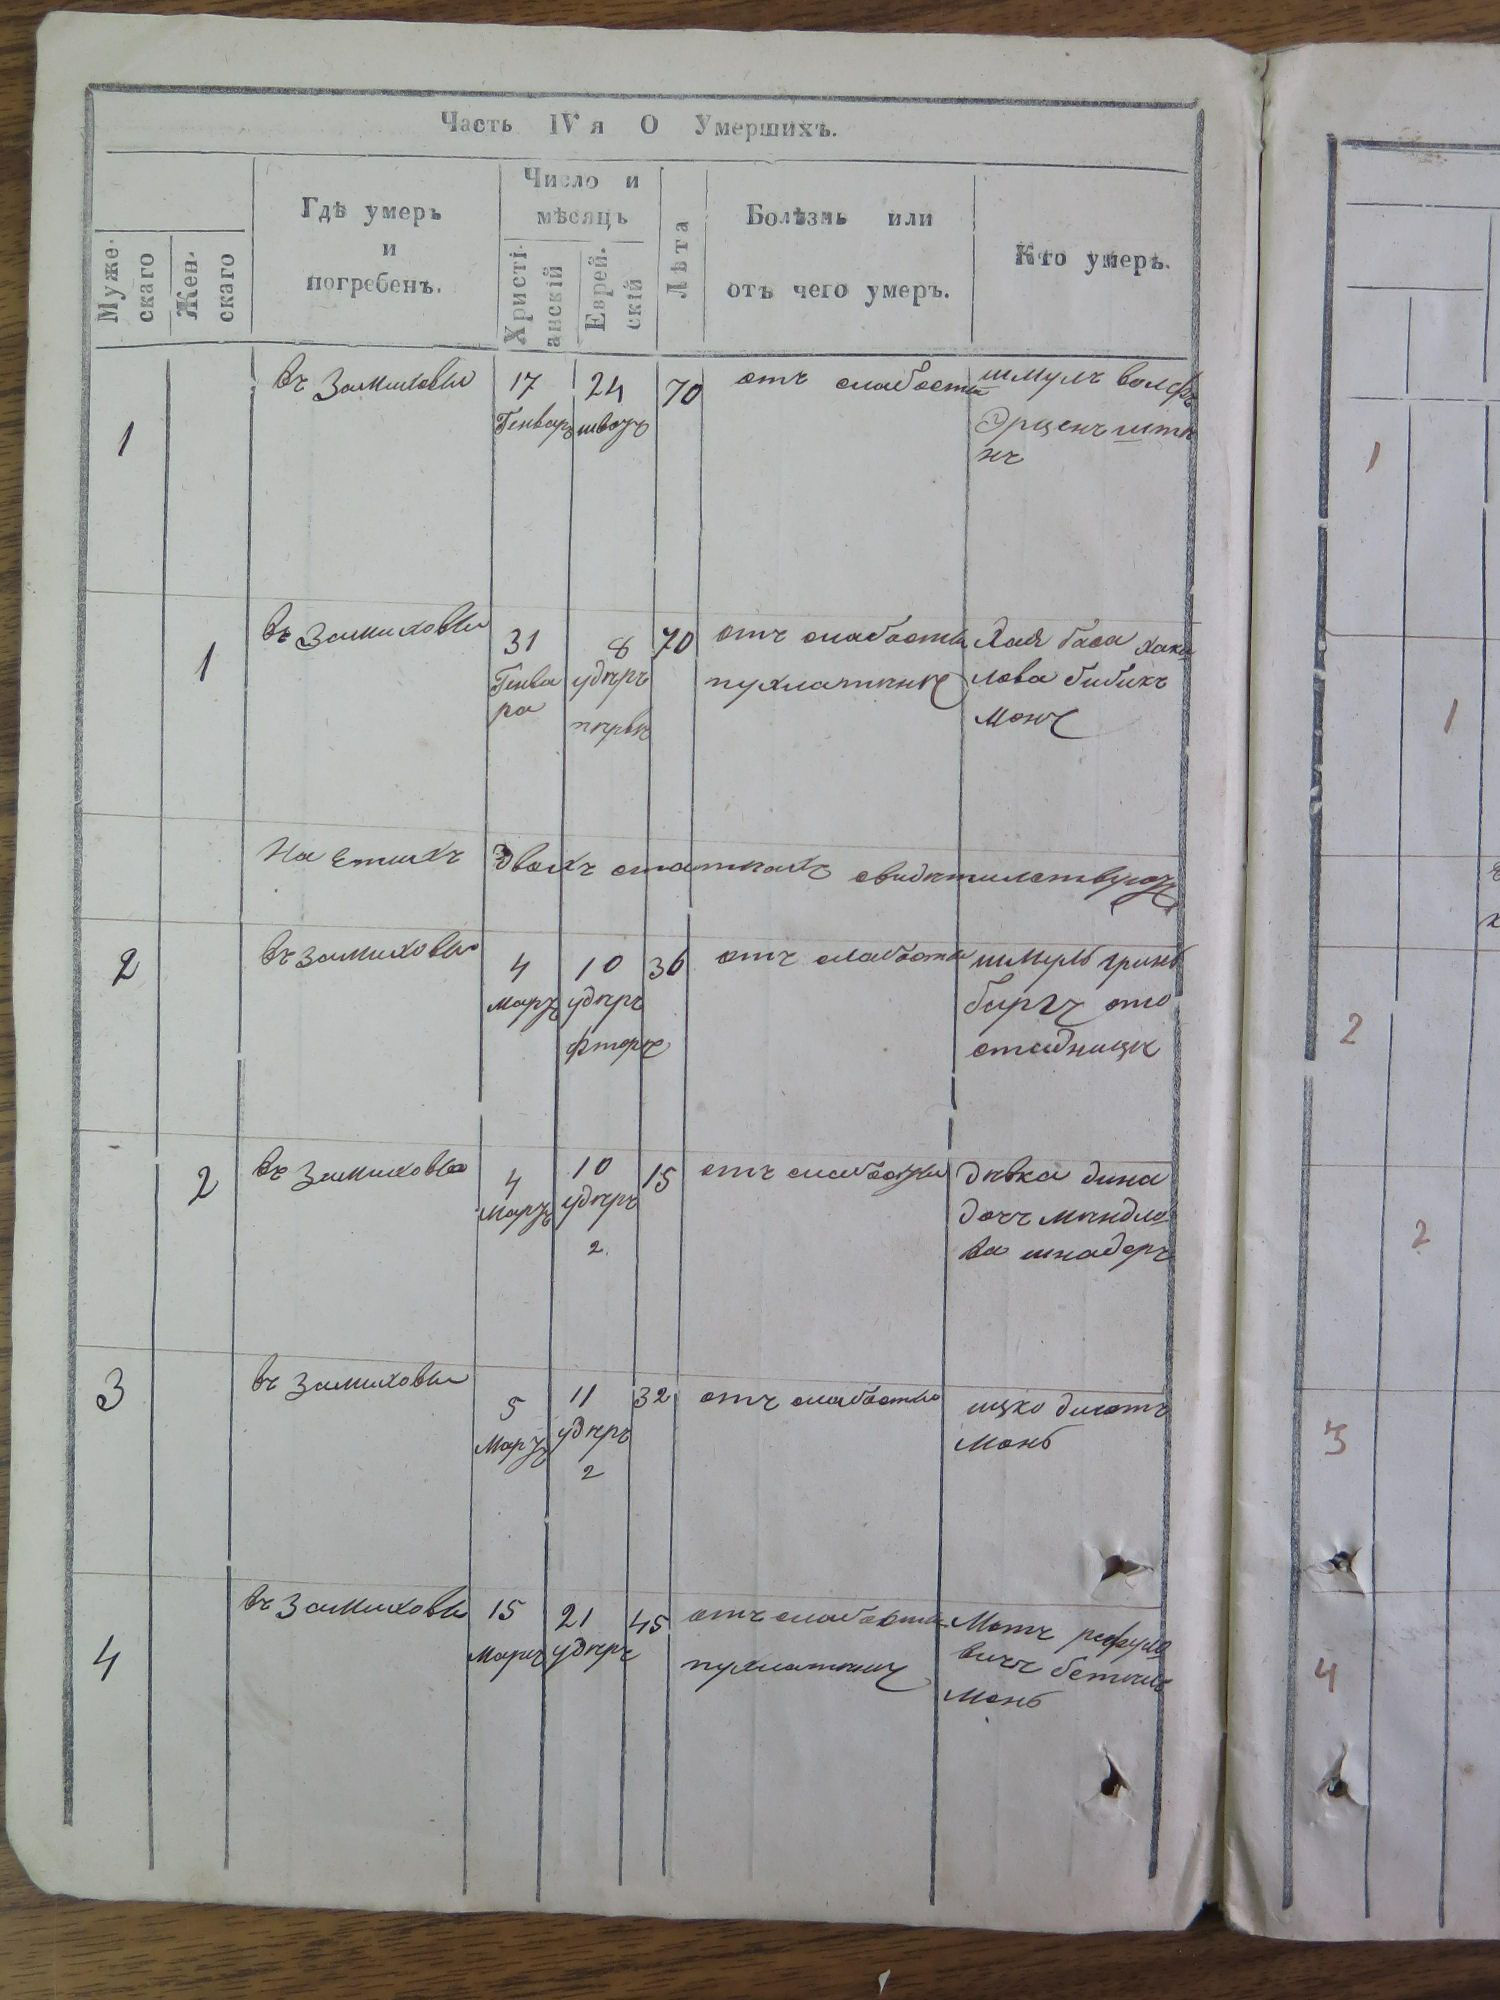 Часть IVя О Умершихъ.
Муже-
скаго
Жен-
скаго
Гдѣ умеръ
и
погребенъ.
Число и
мѣсяцъ
Христі-
анскій
Еврей-
скій
Лѣта
Болѣзнь или
отъ чего умеръ.
Кто умеръ.
1
въ Замиховы
17
Генваръ
24
шватъ
70
отъ слабости
шмулъ волфъ
нъ
1
въ Замиховы
31
Генва
ра
8
удѣръ
первы
70
отъ слабости
Хая баса
лова бибикъ
монъ
На етихъ Двохъ статкахъ
2
въ замиховы
4
Маръ
10
удѣръ
фторы
36
отъ слабости
шмуль гринь
баргъ
2
въ Замиховы
4
Маръ
10
удѣръ
2
15
отъ слабости
дѣвка дина
дочъ мендло
ва шнадеръ
3
въ Замиховы
5
Маръ
11
удѣръ
2
32
отъ слабости
ицко
монь
4
въ Замиховы
15
Маръ
21
удѣръ
45
отъ слабости
Мотъ рефуло
вичъ
монь
1
1
2
2
3
4